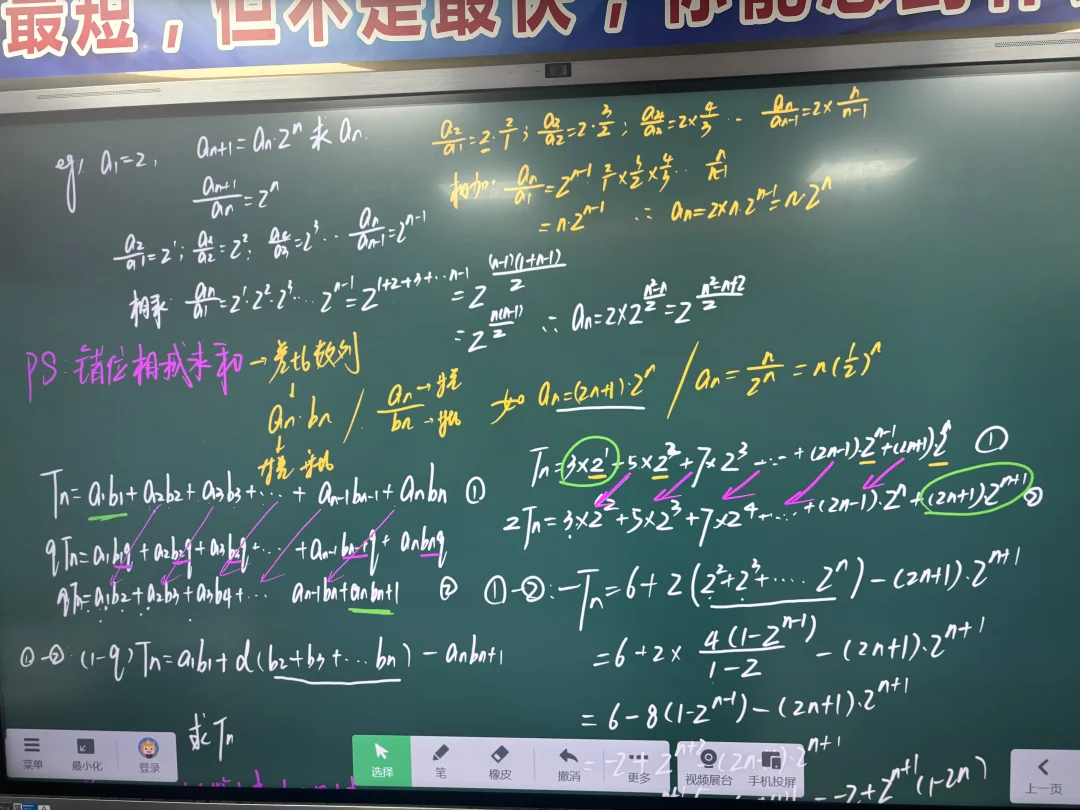 最短，但不是最快，你能
eg, a₁=2, aₙ₊₁=aₙ·2ⁿ 求 aₙ.
aₙ₊₁/aₙ=2ⁿ
a₂/a₁=2¹; a₃/a₂=2²; a₄/a₃=2³ ··· aₙ/aₙ₋₁=2ⁿ⁻¹
相乘: aₙ/a₁=2¹·2²·2³··· 2ⁿ⁻¹=2^(1+2+3+···n-1) =2^((n-1)(1+n-1)/2)
=2^(n(n-1)/2) ∴ aₙ=2×2^((n²-n)/2)=2^((n²-n+2)/2)
a₂/a₁=2·2/1; a₃/a₂=2·3/2; =2×4/3 ·· aₙ/aₙ₋₁=2×n/(n-1)
aₙ/a₁=2ⁿ⁻¹ 2/1×3/2×4/3·· n/(n-1)
=n·2ⁿ⁻¹ ∴ aₙ=2×n·2ⁿ⁻¹=n·2ⁿ
PS: 错位相减求和→差比数列
aₙ·bₙ / aₙ→等差 / bₙ→等比 如 aₙ=(2n+1)·2ⁿ / aₙ=n/2ⁿ=n(1/2)ⁿ
等差 等比
Tₙ=a₁b₁+a₂b₂+a₃b₃+···+ aₙ₋₁bₙ₋₁+aₙbₙ ①
qTₙ=a₁b₁q+a₂b₂q+a₃b₃q+··· +aₙ₋₁bₙ₋₁q+aₙbₙq
qTₙ=a₁b₂+a₂b₃+a₃b₄+··· aₙ₋₁bₙ+aₙbₙ₊₁ ②
①-②: (1-q)Tₙ=a₁b₁+d(b₂+b₃+···bₙ)-aₙbₙ₊₁
求Tₙ
Tₙ=3×2¹+5×2²+7×2³+···+(2n-1)·2ⁿ⁻¹+(2n+1)·2ⁿ ①
2Tₙ=3×2²+5×2³+7×2⁴+···+(2n-1)·2ⁿ+(2n+1)·2ⁿ⁺¹ ②
①-②:-Tₙ=6+2(2²+2³+····2ⁿ)-(2n+1)·2ⁿ⁺¹
=6+2×4(1-2ⁿ⁻¹)/(1-2)-(2n+1)·2ⁿ⁺¹
=6-8(1-2ⁿ⁻¹)-(2n+1)·2ⁿ⁺¹
=-2+2ⁿ⁺²-(2n+1)·2ⁿ⁺¹
=-2+2ⁿ⁺¹(1-2n)
菜单
最小化
登录
选择
笔
橡皮
撤消
更多
视频展台
手机投屏
上一页